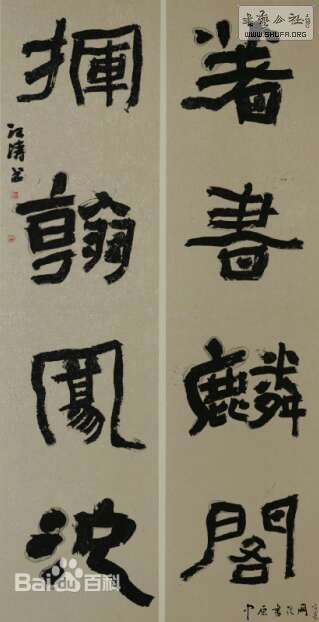 書藝公社
WWW.SHUFA.ORG
著書麟閣
揮翰鳳池
江濤书
Bai百科
中原書法网